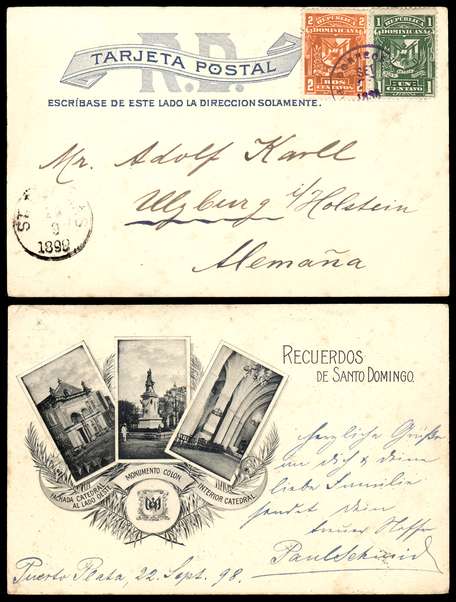 R.D.
TARJETA POSTAL
ESCRÍBASE DE ESTE LADO LA DIRECCION SOLAMENTE.
2 REPÚBLICA 2
DOMINICANA
2 DOS 2
CENTAVOS
1 REPÚBLICA 1
DOMINICANA
1 UN 1
CENTAVO
Mr. Adolf Karll
Ulzburg i/Holstein
Alemaña
1898
RECUERDOS
DE SANTO DOMINGO.
FACHADA CATEDRAL
AL LADO OESTE
MONUMENTO COLON
INTERIOR CATEDRAL
herzliche Grüße
an dich & deine
liebe Familie
sendet dein
treuer
Paul Schmid
Puerto Plata, 22. Sept. 98.